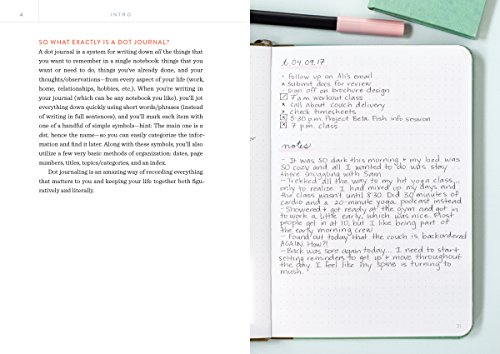 4
INTRO
SO WHAT EXACTLY IS A DOT JOURNAL?
A dot journal is a system for writing down all the things that
you want to remember in a single notebook: things that you
want or need to do, things you've already done, and your
thoughts/observations—from every aspect of your life (work,
home, relationships, hobbies, etc.). When you're writing in
your journal (which can be any notebook you like), you'll jot
everything down quickly using short words/phrases (instead
of writing in full sentences), and you'll mark each item with
one of a handful of simple symbols—hint: The main one is a
dot, hence the name—so you can easily categorize the infor-
mation and find it later. Along with these symbols, you'll also
utilize a few very basic methods of organization: dates, page
numbers, titles, topics/categories, and an index.
Dot journaling is an amazing way of recording everything
that matters to you and keeping your life together both fig-
uratively and literally.
04.09.17
follow up on Ali's email
submit docs for review
sign off on brochure design
7 a.m. workout class
call about couch delivery
check timesheets
5:30 p.m. Project Beta Fish info session
7 p.m. class
notes
- It was SO dark this morning + my bed was
so cozy and all I wanted to do was stay
there snuggling with Sam
- Trekked all the way to my hot yoga class...
only to realize I had mixed up my days and
the class wasn't until 8:30. Did 30 minutes of
cardio and a 20-minute yoga podcast instead
- Showered + got ready at the gym and got in
to work a little early, which was nice. Most
people get in at 10, but I like being part of
the early morning crew
- Found out today that the couch is backordered
AGAIN. How?!
- Back was sore again today... I need to start
setting reminders to get up + move throughout
the day. I feel like my spine is turning to
mush.